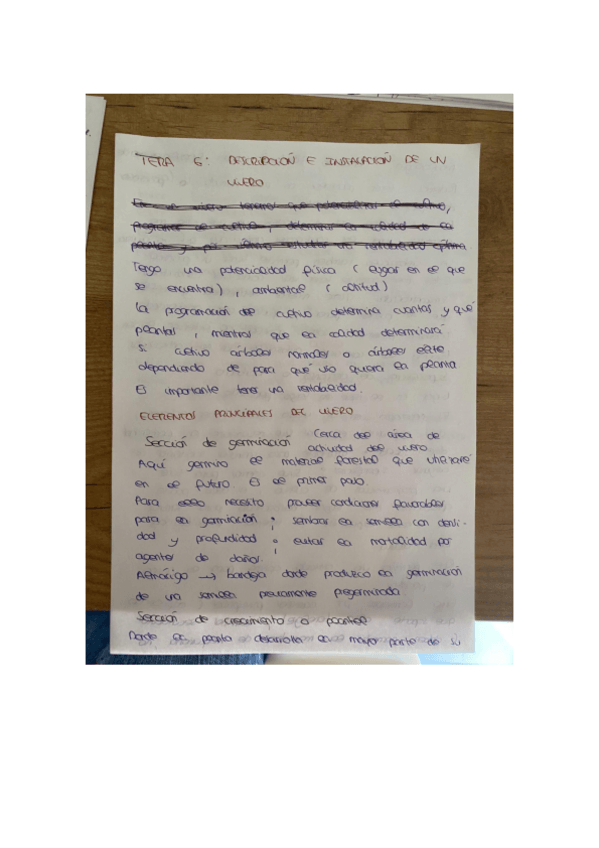 TEMA 6: DESCRIPCIÓN E INSTALACIÓN DE UN
VIVERO
En un vivero tenemos que potencialidad de cultivo,
programa de cultivo, determinar la calidad de la
planta y por último estudiar una rentabilidad óptima
Tengo una potencialidad física (lugar en el que
se encuentra), ambiental (altitud)
La programación del cultivo determina cuántas y qué
plantas, mientras que la calidad determinará
si cultivo árboles normales o árboles élite
dependiendo de para qué uso quiera la planta
Es importante tener una rentabilidad.
ELEMENTOS PRINCIPALES DEL VIVERO
Sección de germinación Cerca del área de
actividad del vivero
Aquí germino el material forestal que utilizaré
en el futuro. Es el primer paso.
Para ello necesito proveer condiciones favorables
para la germinación; sembrar la semilla con densi-
dad y profundidad; evitar la mortalidad por
agentes de daños.
Almácigo → bandeja donde produzco la germinación
de una semilla previamente pregerminada
Sección de crecimiento o plantel
Donde la planta desarrolla la mayor parte de su